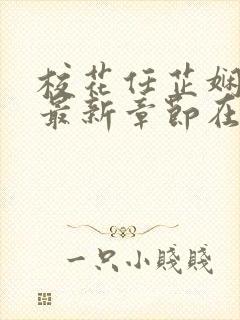 校花任芷娴
最新章節在
一只小賤賤